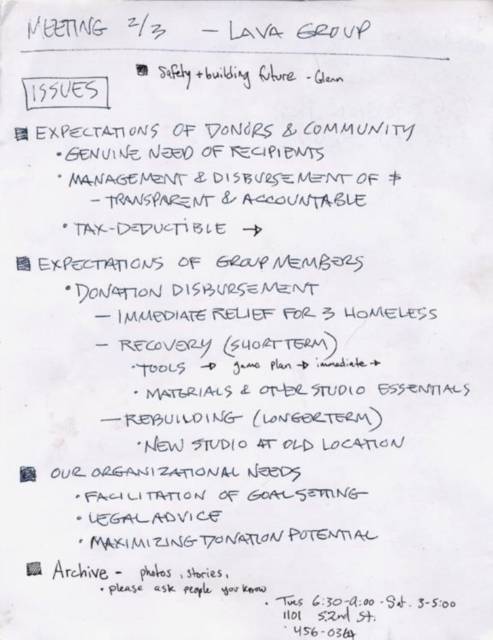 MEETING 2/3 — LAVA GROUP
■ Safety + building future - Glenn
ISSUES
■ EXPECTATIONS OF DONORS & COMMUNITY
• GENUINE NEED OF RECIPIENTS
• MANAGEMENT & DISBURSEMENT OF $
— TRANSPARENT & ACCOUNTABLE
• TAX-DEDUCTIBLE →
■ EXPECTATIONS OF GROUP MEMBERS
• DONATION DISBURSEMENT
— IMMEDIATE RELIEF FOR 3 HOMELESS
— RECOVERY (SHORT TERM)
• TOOLS → game plan → immediate →
• MATERIALS & OTHER STUDIO ESSENTIALS
— REBUILDING (LONGER TERM)
• NEW STUDIO AT OLD LOCATION
■ OUR ORGANIZATIONAL NEEDS
• FACILITATION OF GOAL SETTING
• LEGAL ADVICE
• MAXIMIZING DONATION POTENTIAL
■ Archive - photos, stories,
• please ask people you know
• Tues 6:30-9:00 - Sat. 3-5:00
1101 S. 2nd St.
• 456-0364